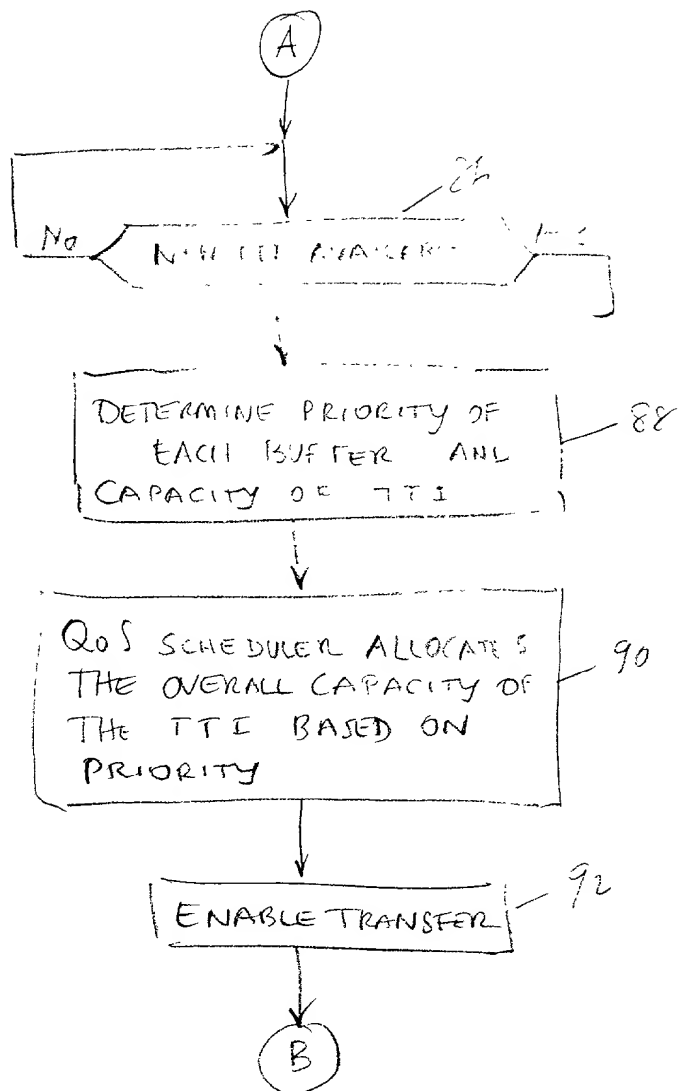 A
No
DETERMINE PRIORITY OF
EACH BUFFER AND
CAPACITY OF TTI
88
QoS SCHEDULER ALLOCATES
THE OVERALL CAPACITY OF
THE TTI BASED ON
PRIORITY
90
ENABLE TRANSFER
92
B